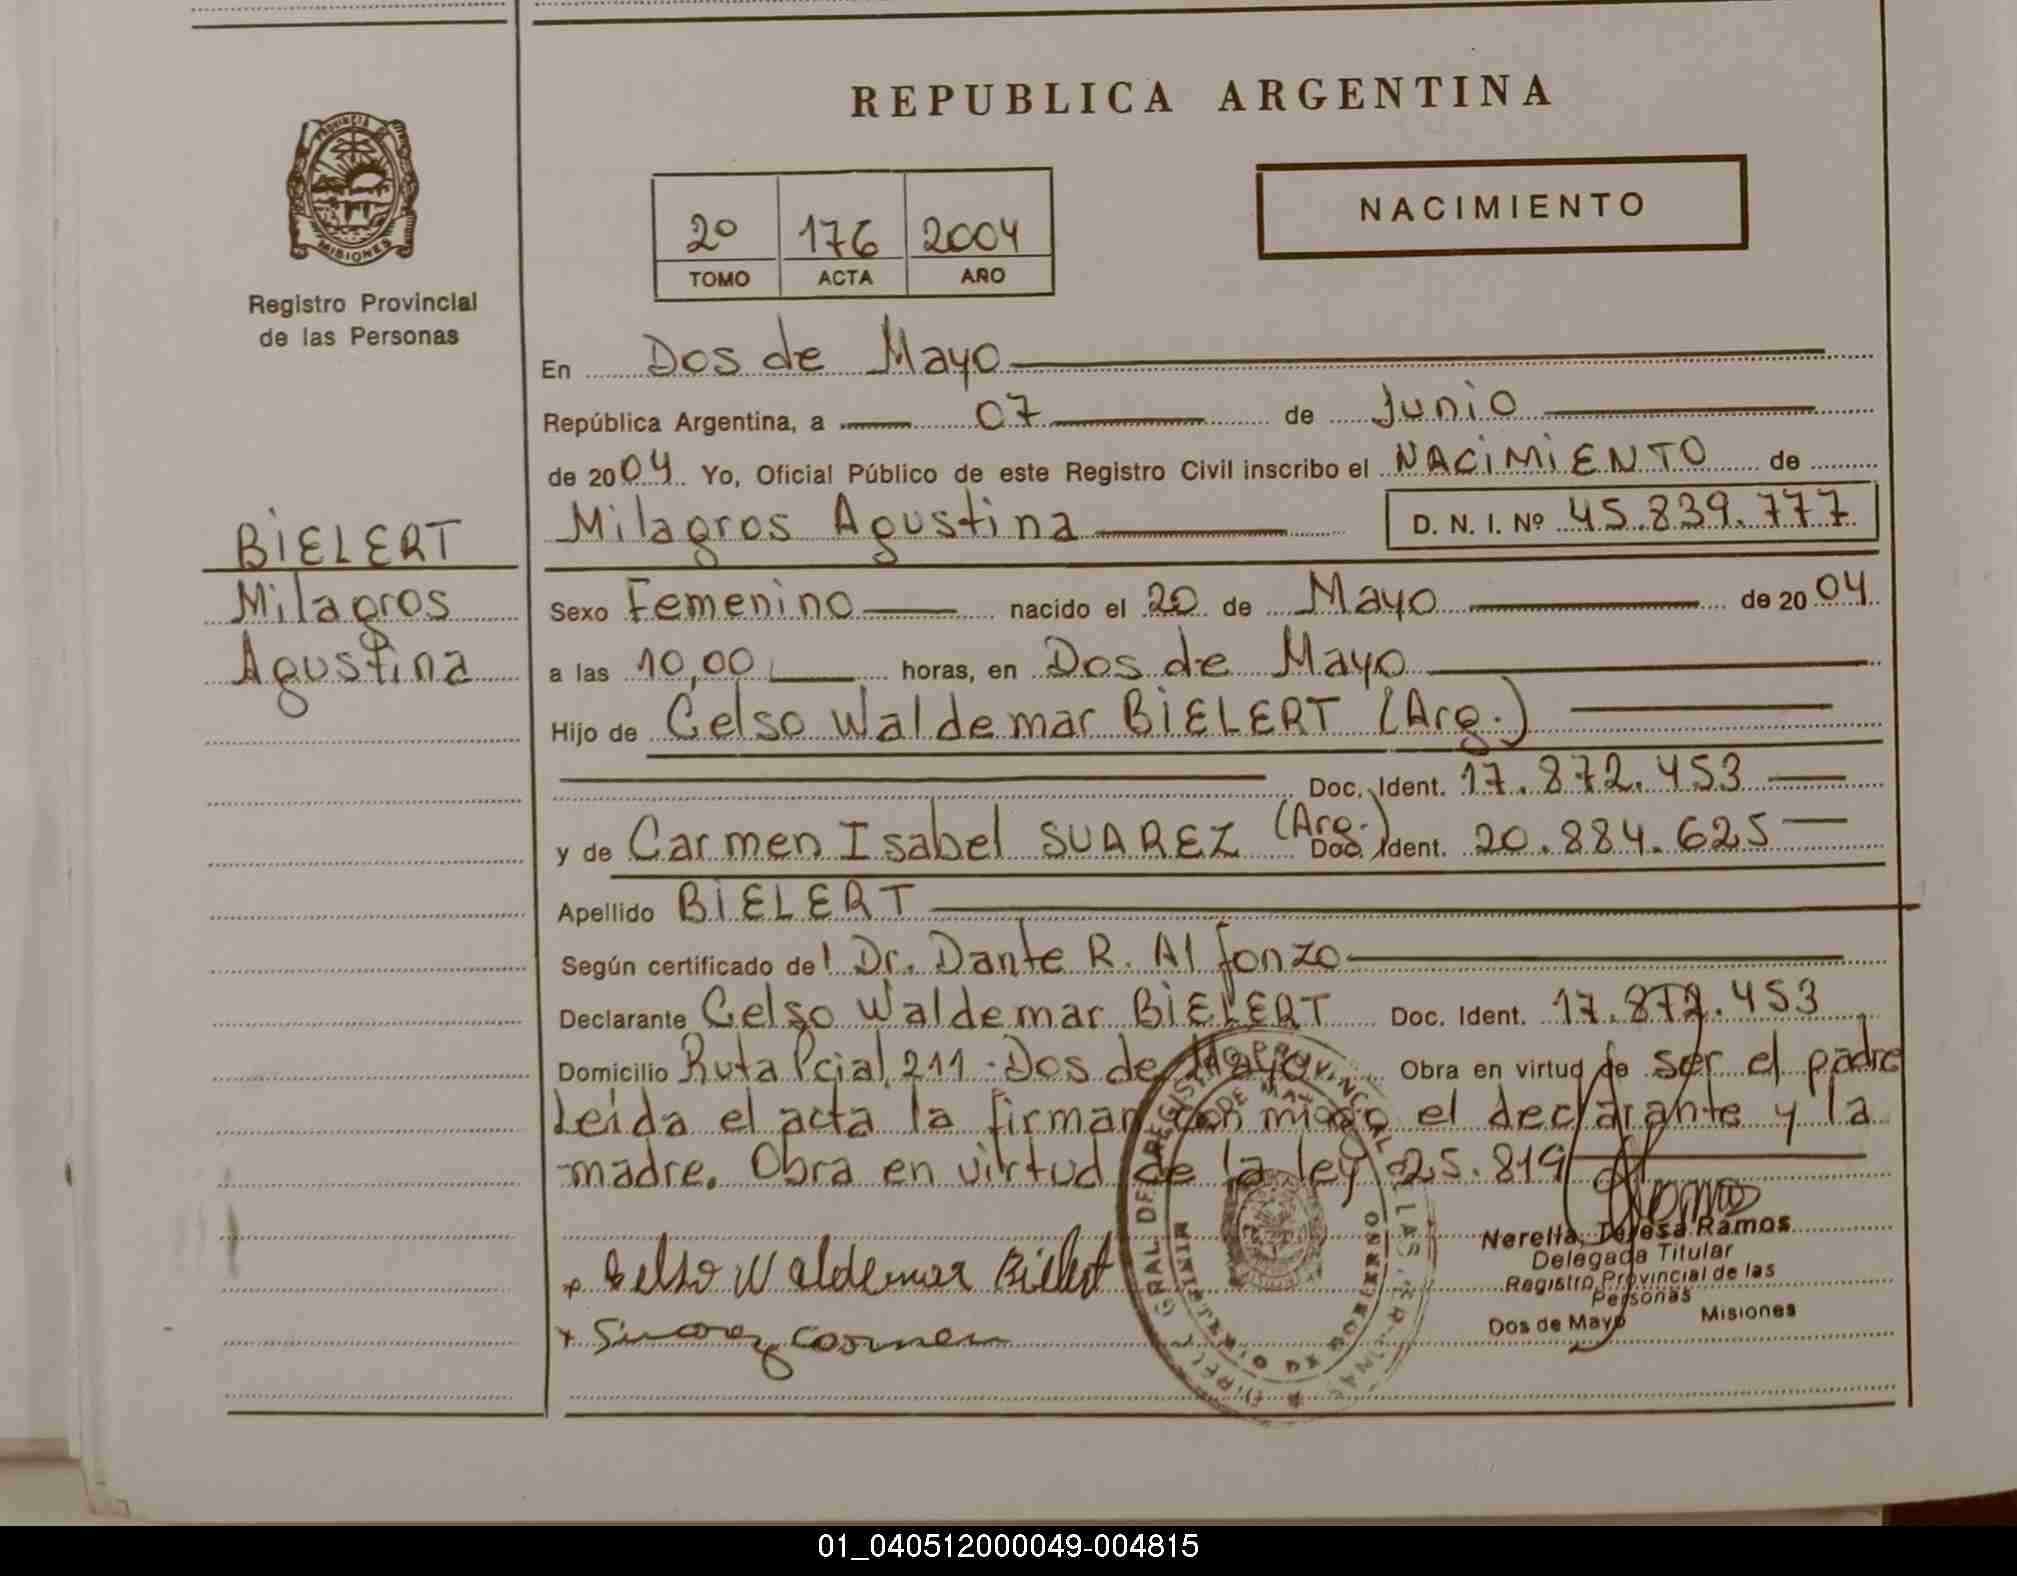 REPUBLICA ARGENTINA
PROVINCIA DE
MISIONES
Registro Provincial
de las Personas
2º 176 2004
TOMO ACTA AÑO
NACIMIENTO
En Dos de Mayo
República Argentina, a 07 de Junio
de 2004 Yo, Oficial Público de este Registro Civil inscribo el NACIMIENTO de
Milagros Agustina D. N. I. Nº 45.839.777
BIELERT
Milagros
Agustina
Sexo Femenino nacido el 20 de Mayo de 2004
a las 10,00 horas, en Dos de Mayo
Hijo de Celso Waldemar BIELERT (Arg.)
Doc. Ident. 17.872.453
y de Carmen Isabel SUAREZ (Arg.) Doc. Ident. 20.884.625
Apellido BIELERT
Según certificado del Dr. Dante R. Alfonzo
Declarante Celso Waldemar BIELERT Doc. Ident. 17.872.453
Domicilio Ruta Pcial 211 - Dos de Mayo Obra en virtud de ser el padre
Leída el acta la firman con migo el declarante y la
madre. Obra en virtud de la ley 25.819
Celso Waldemar Bielert
Suarez Carmen
Nerella Teresa Ramos
Delegada Titular
Registro Provincial de las
Personas
Dos de Mayo Misiones
01_040512000049-004815